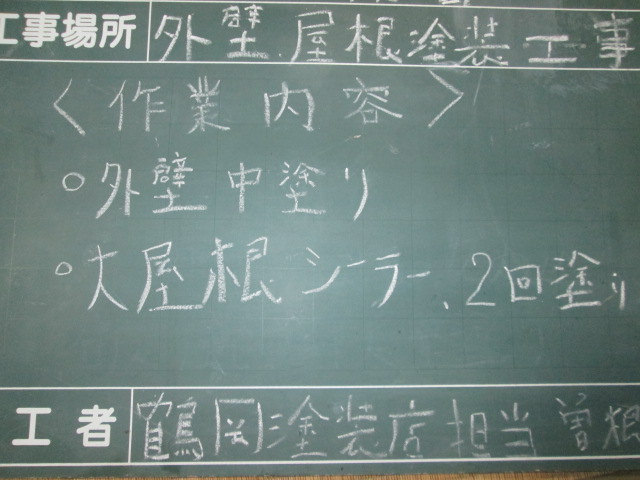 工事場所 外壁.屋根塗装工事
＜作業内容＞
○外壁中塗り
○大屋根シーラー、2回塗り
工者 鶴岡塗装店担当 曽根